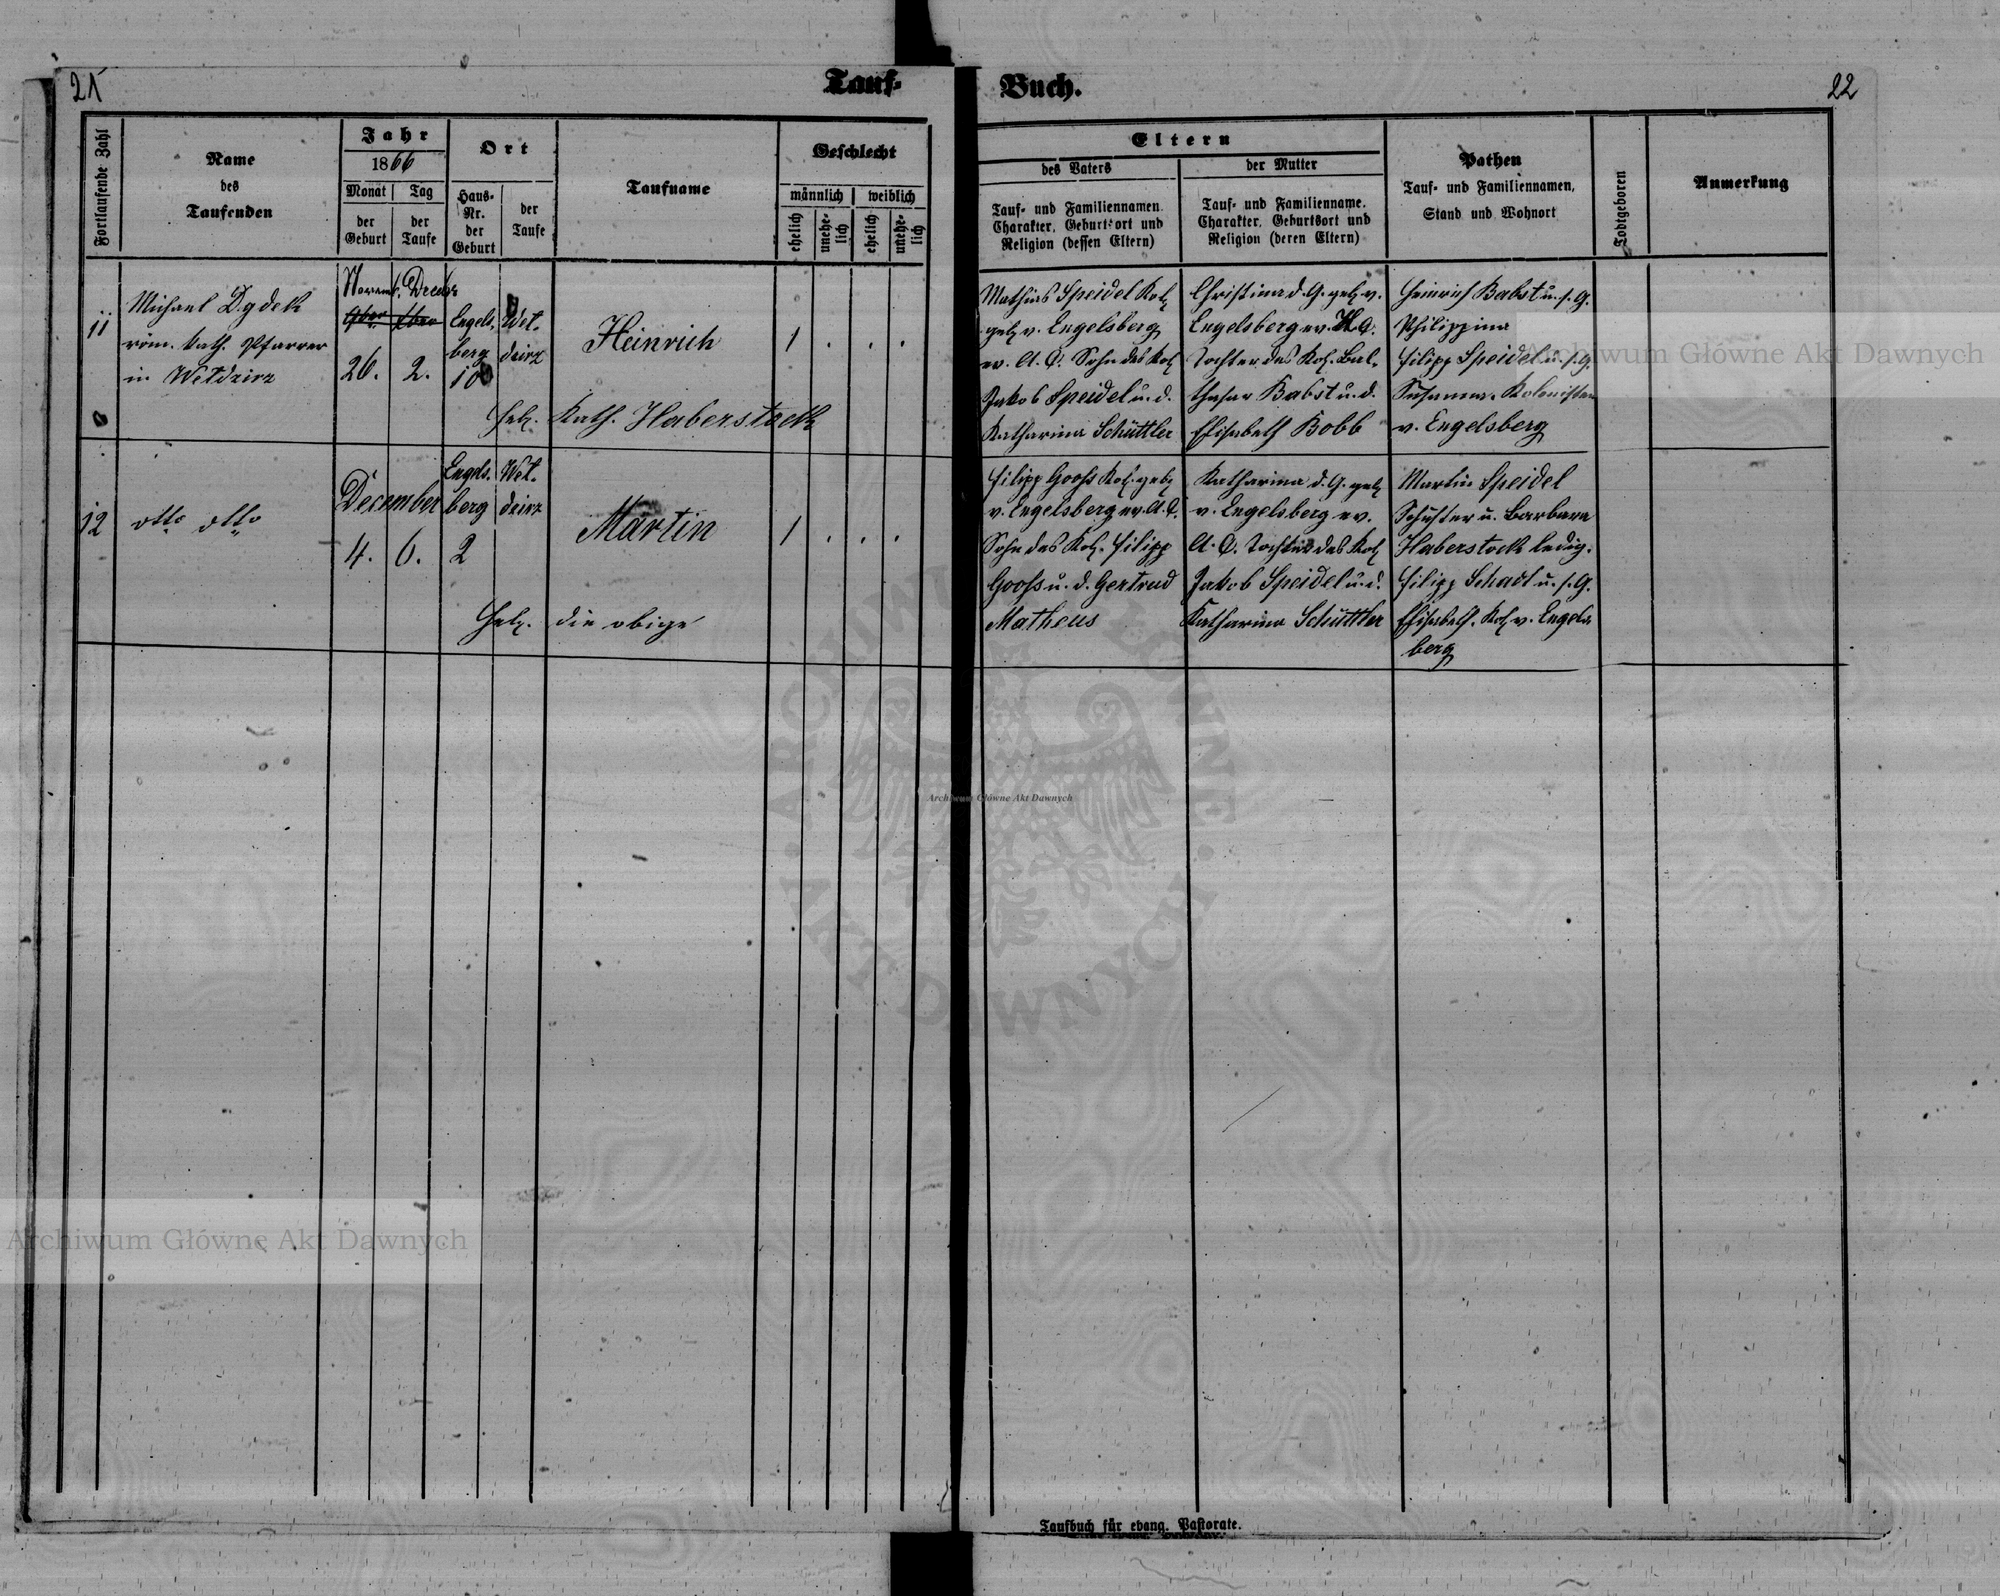 21
Tauf-
Buch.
22
Fortlaufende Zahl
Name
des
Taufenden
Jahr
1866
Monat
Tag
der
Geburt
der
Taufe
Ort
Haus-
Nr.
der
Geburt
der
Taufe
Taufname
Geschlecht
männlich
weiblich
ehelich
unehe-
lich
ehelich
unehe-
lich
Eltern
des Vaters
der Mutter
Tauf- und Familiennamen
Charakter, Geburtsort und
Religion (dessen Eltern)
Tauf- und Familienname.
Charakter, Geburtsort und
Religion (deren Eltern)
Pathen
Tauf- und Familiennamen,
Stand und Wohnort
Todtgeboren
Anmerkung
11
Michael Dydek
röm. kath. Pfarrer
in Wełdzirz
Novemb. Decebr
26. 2.
Engels-
berg
10
Weł-
dzirz
Heinrich
1 . . .
Heb. Kath. Haberstock
Mathias Speidel Kol.
geb. v. Engelsberg
ev. A. C. Sohn des Kol.
Jakob Speidel u. d.
Katharina Schüttler
Christina d. G. geb. v.
Engelsberg ev. H. C.
Tochter des Kol. Bal-
thasar Babst u. d.
Elisabeth Bobb
Heinrich Babst u. s. G.
Philippina
Filipp Speidel u. s. G.
Susanna. Kolonisten
v. Engelsberg
12
otto otto
December
4. 6.
Engels-
berg
2
Weł-
dzirz
Martin
1 . . .
Heb. die obige
Filipp Gooss Kol. geb.
v. Engelsberg ev. A. C.
Sohn des Kol. Filipp
Gooss u. d. Gertrud
Matheus
Katharina d. G. geb.
v. Engelsberg ev.
A. C. Tochter des Kol.
Jakob Speidel u. d.
Katharina Schüttler
Martin Speidel
Schuster u. Barbara
Haberstock ledig.
Filipp Schadt u. s. G.
Elisabeth. Kol. v. Engels-
berg
Archiwum Główne Akt Dawnych
Archiwum Główne Akt Dawnych
ARCHIWUM GŁÓWNE AKT DAWNYCH
Archiwum Główne Akt Dawnych
Taufbuch für evang. Pastorate.